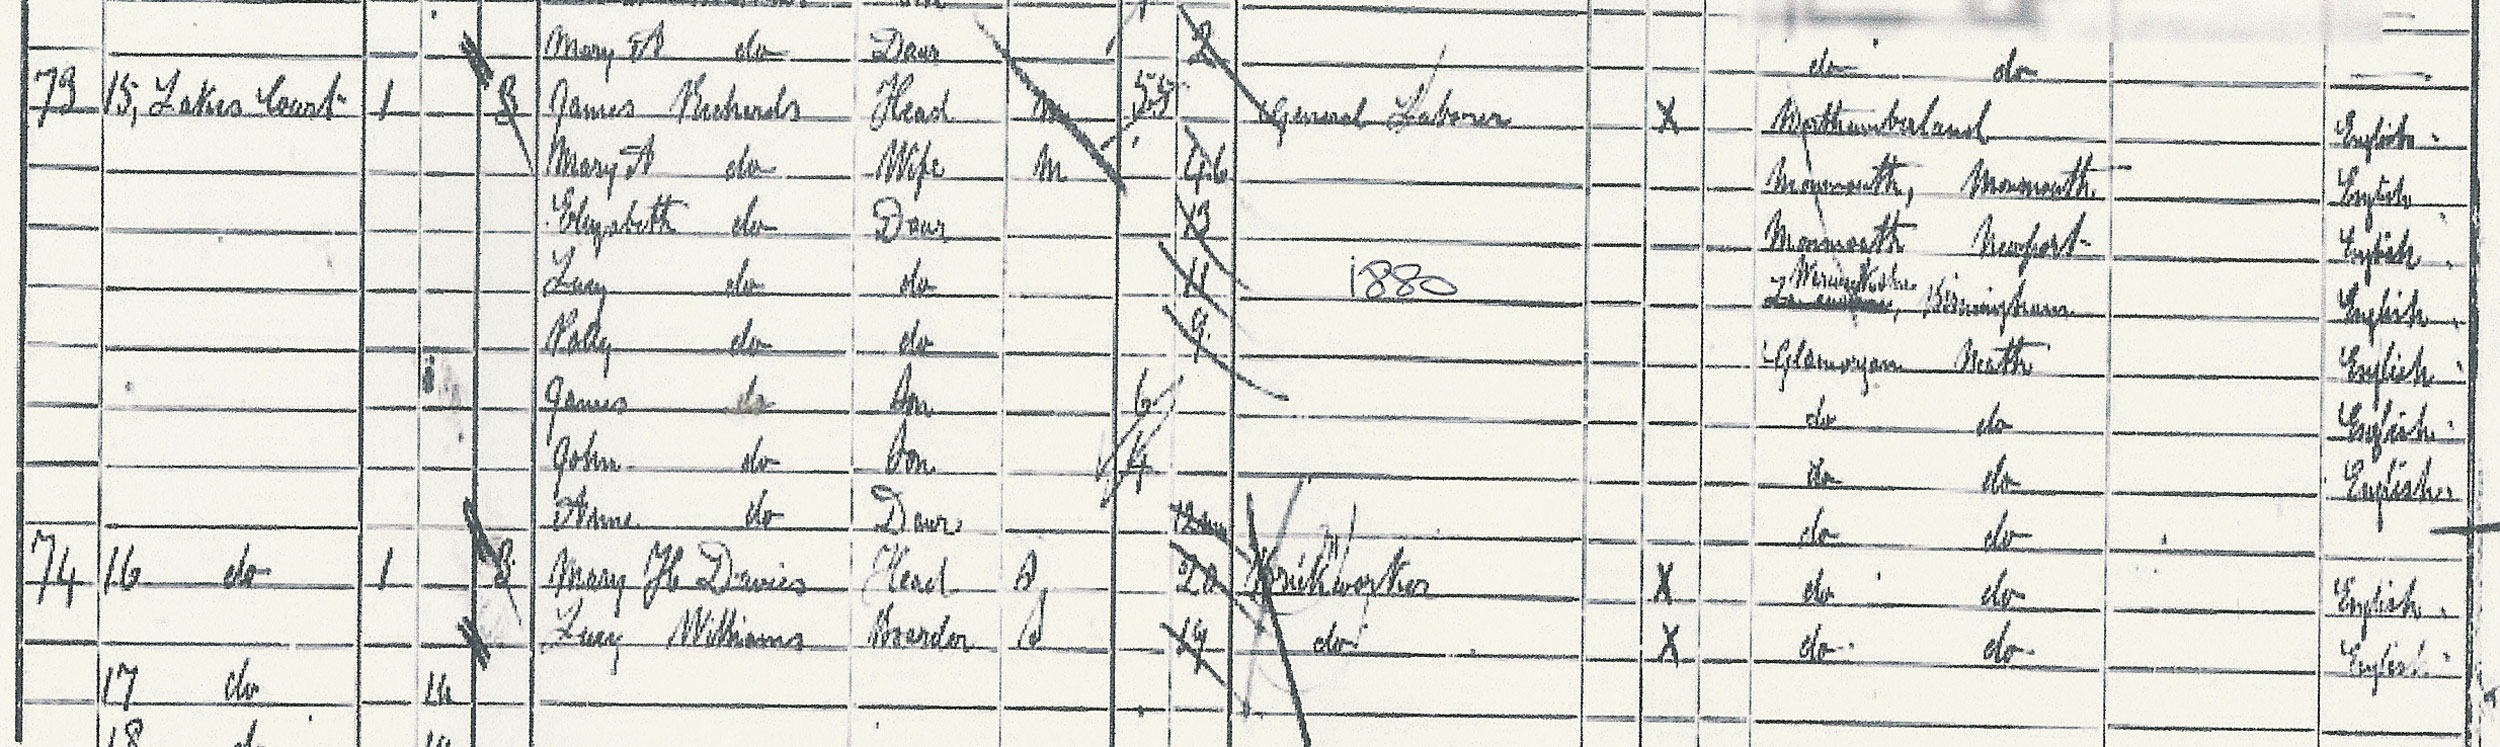 Mary A do Daur 2 do do
73 15, Lakes Court 1 3 James Richards Head M 55 General Laborer X Northumberland English
Mary A do Wife M 46 Monmouth, Monmouth English
Elizabeth do Daur 13 Monmouth Newport English
Lucy do do 11 1880 Birmingham English
Polly do do 9 Glamorgan Neath English
James do Son 6 do do English
John do Son 4 do do English
Annie do Daur do do
74 16 do 1 Mary H Davies Head S 20 Brickworker X do do English
Lucy Williams Boarder S 19 do X do do English
17 do
18 do